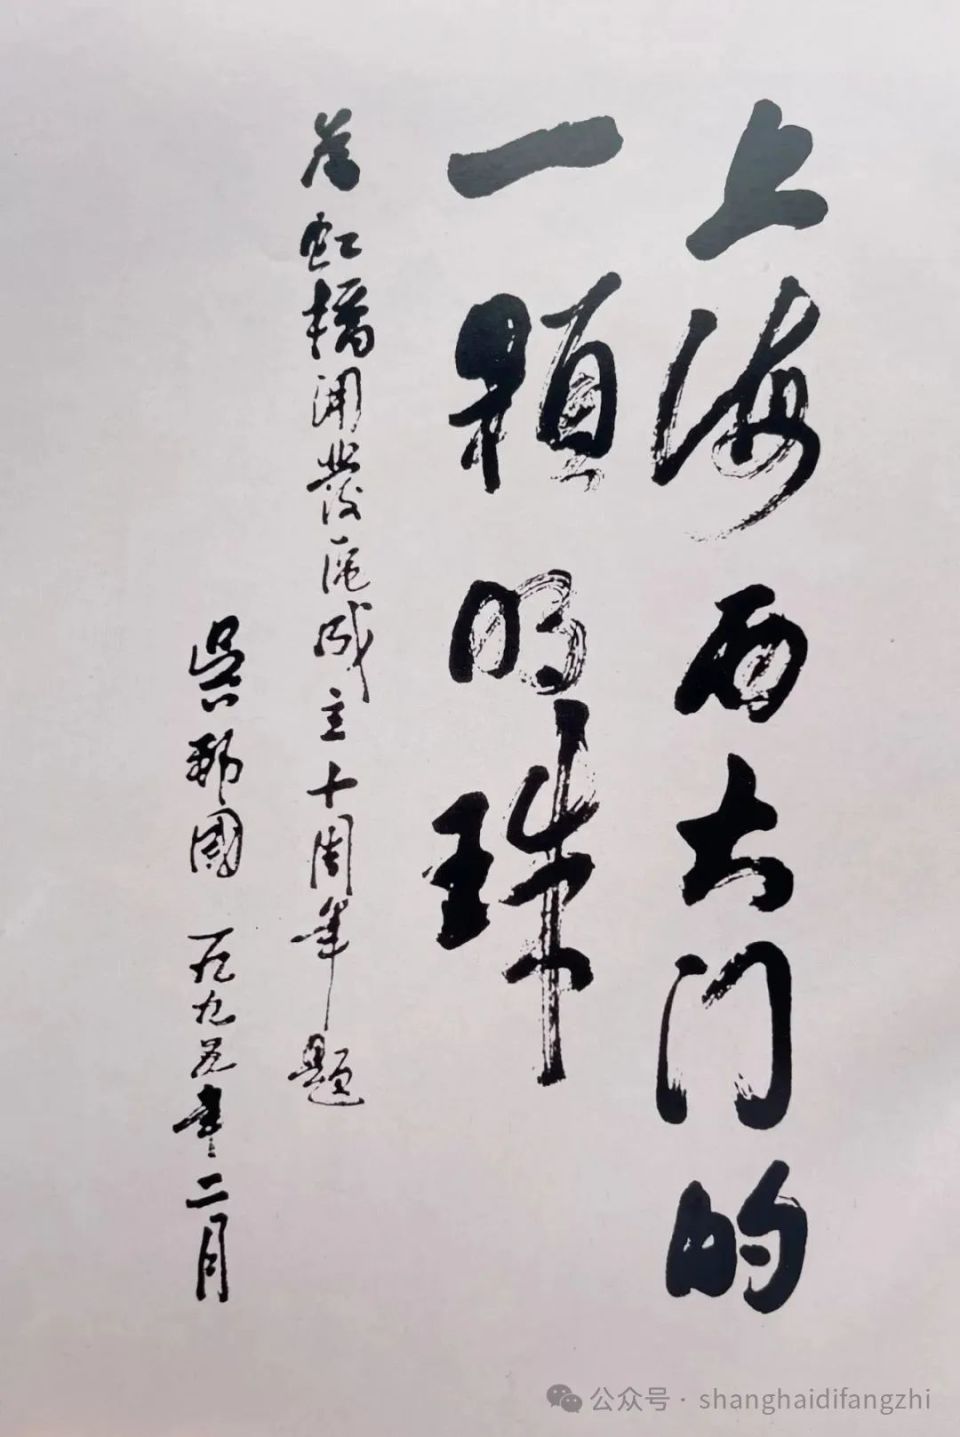 上海西大门的
一颗明珠
为虹桥开发区成立十周年题
吴邦國 一九九五年二月
公众号 · shanghaidifangzhi